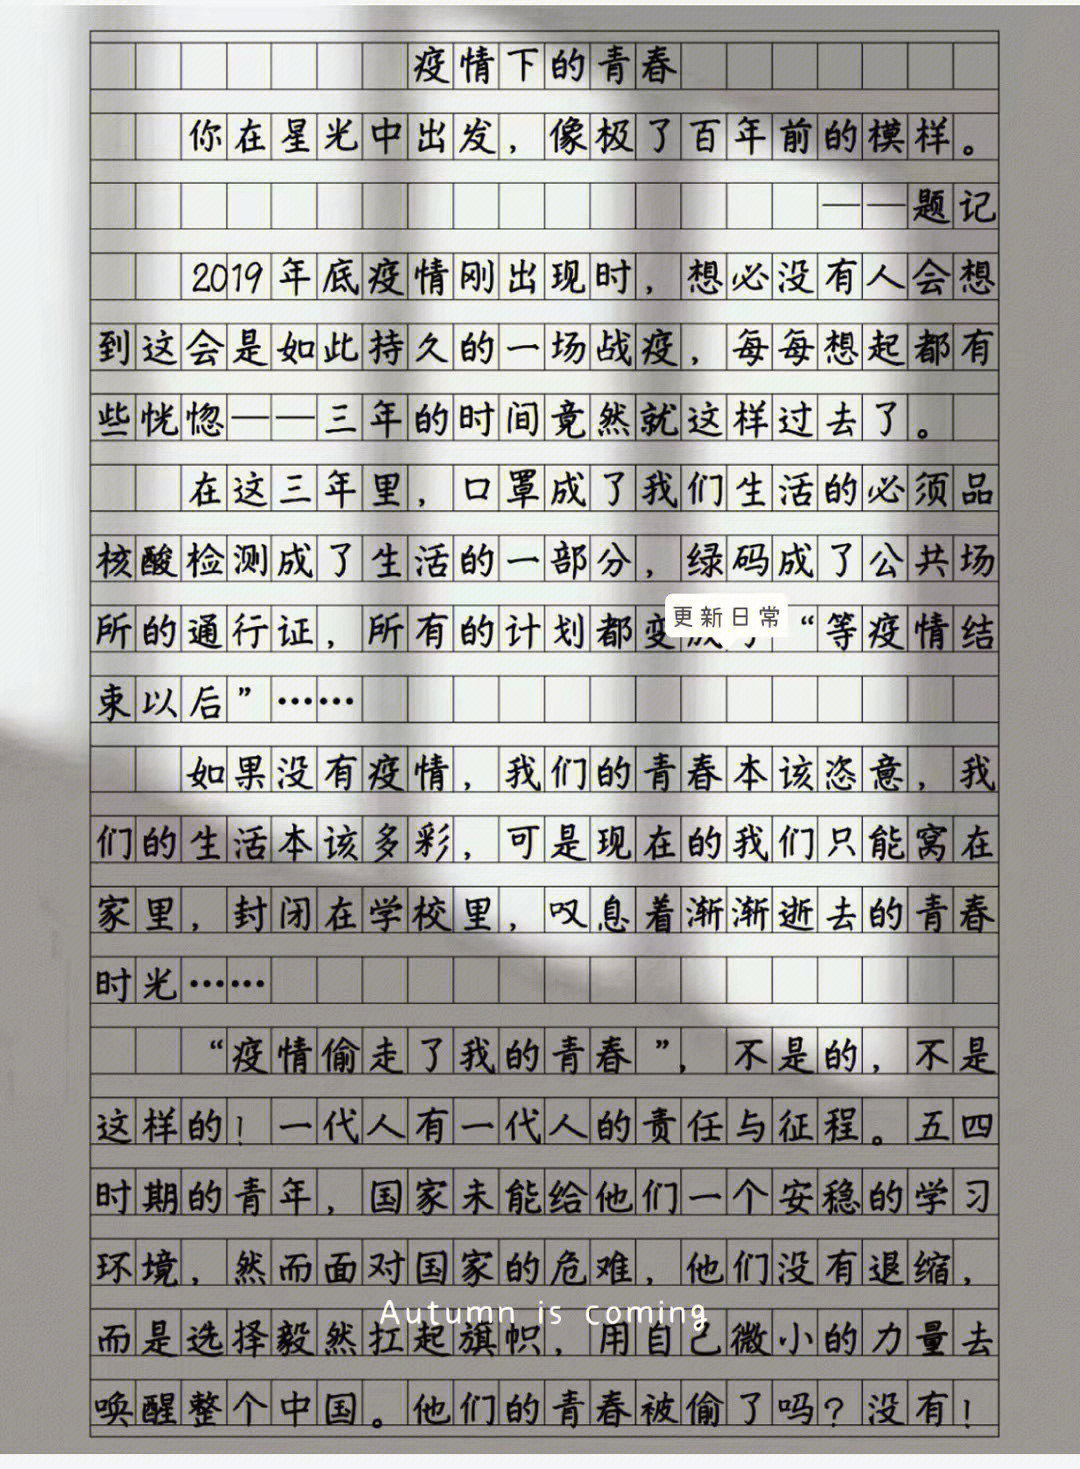 疫情下的青春
你在星光中出发，像极了百年前的模样。
——题记
2019年底疫情刚出现时，想必没有人会想
到这会是如此持久的一场战疫，每每想起都有
些恍惚——三年的时间竟然就这样过去了。
在这三年里，口罩成了我们生活的必须品
核酸检测成了生活的一部分，绿码成了公共场
更新日常
所的通行证，所有的计划都变 “等疫情结
束以后”……
如果没有疫情，我们的青春本该恣意，我
们的生活本该多彩，可是现在的我们只能窝在
家里，封闭在学校里，叹息着渐渐逝去的青春
时光……
“疫情偷走了我的青春”，不是的，不是
这样的！一代人有一代人的责任与征程。五四
时期的青年，国家未能给他们一个安稳的学习
环境，然而面对国家的危难，他们没有退缩，
Autumn is coming
而是选择毅然扛起旗帜，用自己微小的力量去
唤醒整个中国。他们的青春被偷了吗？没有！